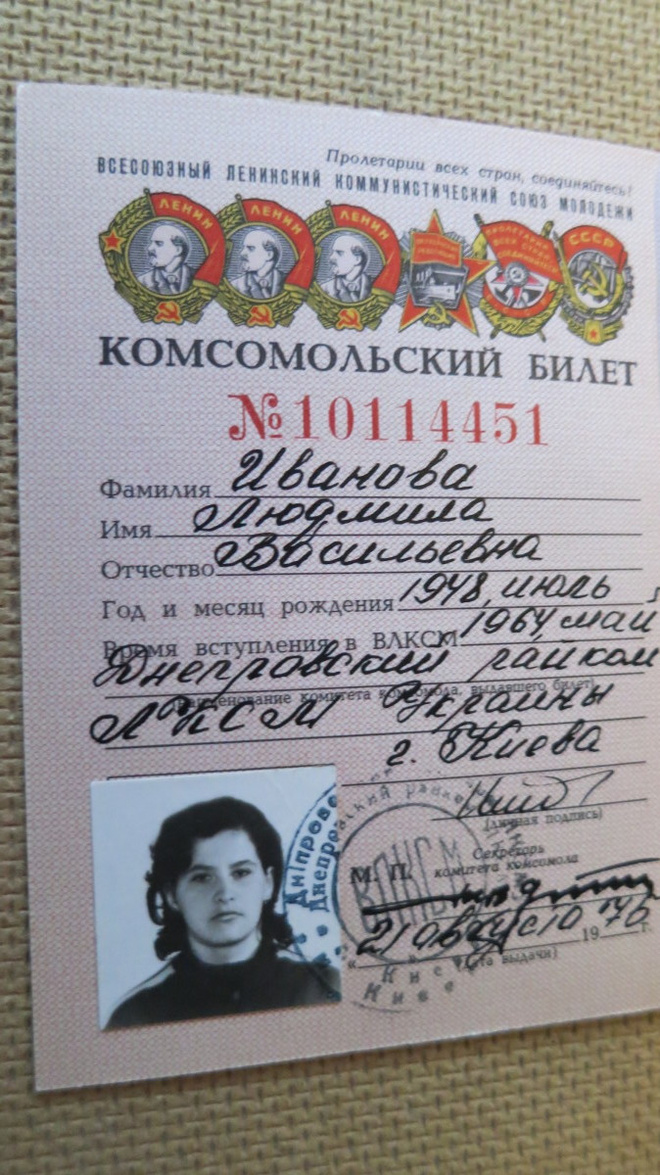 Пролетарии всех стран, соединяйтесь!
ВСЕСОЮЗНЫЙ ЛЕНИНСКИЙ КОММУНИСТИЧЕСКИЙ СОЮЗ МОЛОДЕЖИ
ЛЕНИН ЛЕНИН ЛЕНИН СССР
КОМСОМОЛЬСКИЙ БИЛЕТ
№10114451
Фамилия Иванова
Имя Людмила
Отчество Васильевна
Год и месяц рождения 1948, июль
Время вступления в ВЛКСМ 1964 май
Днепровский райком
(наименование комитета комсомола, выдавшего билет)
ЛКСМ Украины
г. Киева
(личная подпись)
Секретарь
М. П. комитета комсомола
"21" августа 1976 г.
(дата выдачи)
ВЛКСМ